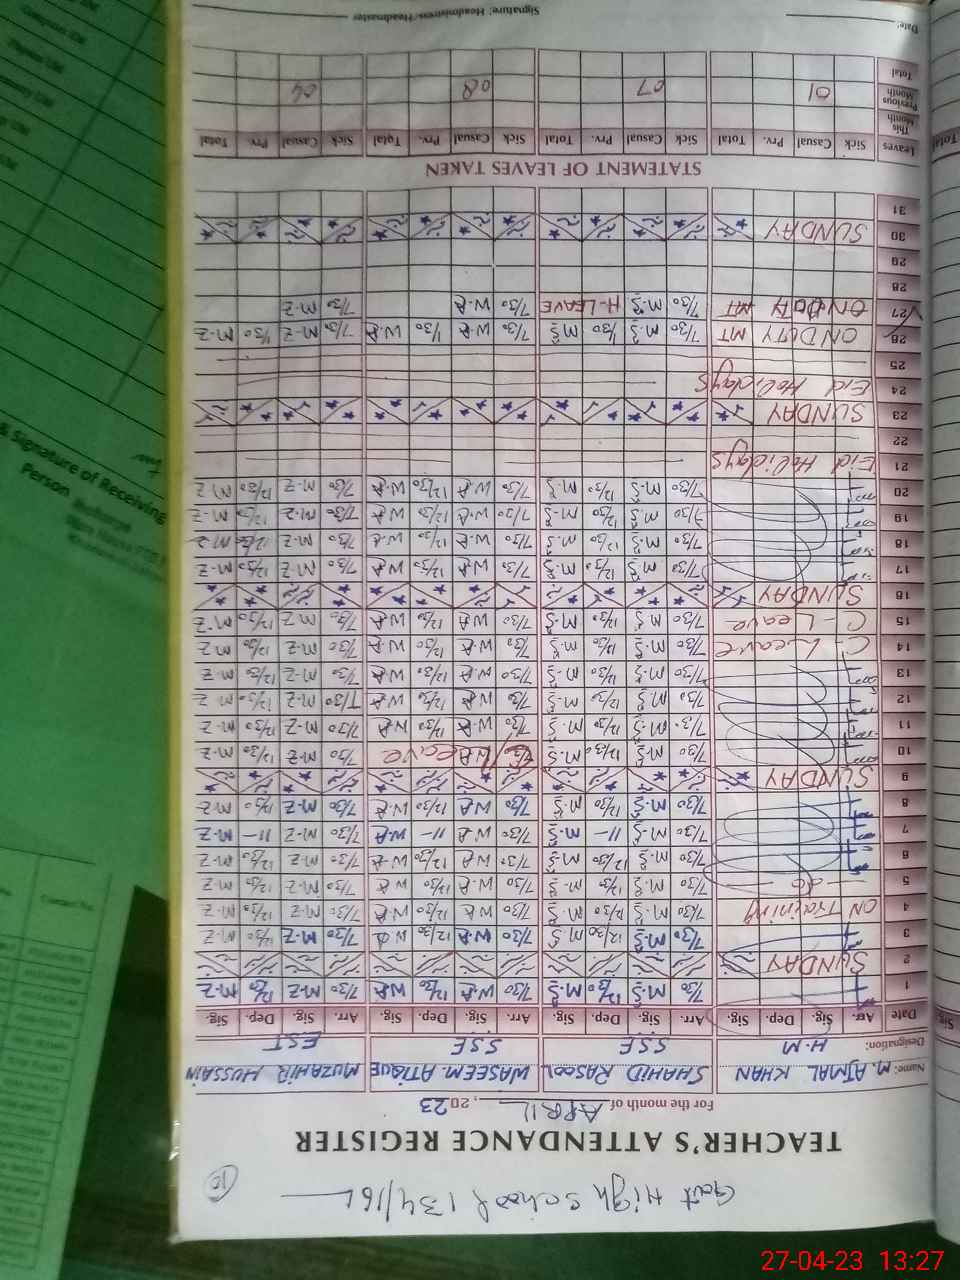 Govt High School 134/16L
10
TEACHER'S ATTENDANCE REGISTER
For the month of APRIL, 2023
Name: M. AJMAL KHAN SHAHID RASOOL WASEEM ATIQUE MUZAHIR HUSSAIN
Designation: H.M S.S.E S.S.E EST
Date Arr. Sig. Dep. Sig. Arr. Sig. Dep. Sig. Arr. Sig. Dep. Sig. Arr. Sig. Dep. Sig.
1 7/30 M.S 12/30 M.S 7/30 W.A 12/30 W.A 7/30 M-Z 12/30 M-Z
2 SUNDAY
3 7/30 M.S 12/30 M.S 7/30 W.A 12/30 W.A 7/30 M-Z 12/30 M-Z
4 ON Training 7/30 M.S 12/30 M.S 7/30 W.A 12/30 W.A 7/30 M-Z 12/30 M-Z
5 — do — 7/30 M.S 12/30 M.S 7/30 W.A 12/30 W.A 7/30 M-Z 12/30 M-Z
6 7/30 M.S 12/30 M.S 7/30 W.A 12/30 W.A 7/30 M-Z 12/30 M-Z
7 7/30 M.S 11- M.S 7/30 W.A 11- W.A 7/30 M-Z 11- M-Z
8 7/30 M.S 12/30 M.S 7/30 W.A 12/30 W.A 7/30 M-Z 12/30 M-Z
9 SUNDAY
10 7/30 M.S 12/30 M.S 7/30 W.A C/Leave 7/30 M-Z 12/30 M-Z
11 7/30 M.S 12/30 M.S 7/30 W.A 12/30 W.A 7/30 M-Z 12/30 M-Z
12 7/30 M.S 12/30 M.S 7/30 W.A 12/30 W.A 7/30 M-Z 12/30 M-Z
13 7/30 M.S 12/30 M.S 7/30 W.A 12/30 W.A 7/30 M-Z 12/30 M-Z
14 C-Leave 7/30 M.S 12/30 M.S 7/30 W.A 12/30 W.A 7/30 M-Z 12/30 M-Z
15 C-Leave 7/30 M.S 12/30 M.S 7/30 W.A 12/30 W.A 7/30 M-Z 12/30 M-Z
16 SUNDAY
17 7/30 M.S 12/30 M.S 7/30 W.A 12/30 W.A 7/30 M-Z 12/30 M-Z
18 7/30 M.S 12/30 M.S 7/30 W.A 12/30 W.A 7/30 M-Z 12/30 M-Z
19 7/30 M.S 12/30 M.S 7/30 W.A 12/30 W.A 7/30 M-Z 12/30 M-Z
20 7/30 M.S 12/30 M.S 7/30 W.A 12/30 W.A 7/30 M-Z 12/30 M-Z
21 Eid Holidays
22
23 SUNDAY
24 Eid Holidays
25
26 ON DUTY MT 7/30 M.S 1/30 M.S 7/30 W.A 1/30 W.A 7/30 M-Z 1/30 M-Z
27 ON DUTY MT 7/30 M.S H-LEAVE 7/30 W.A 7/30 M-Z
28
29
30 SUNDAY
31
STATEMENT OF LEAVES TAKEN
Leaves Sick Casual Prv. Total Sick Casual Prv. Total Sick Casual Prv. Total Sick Casual Prv. Total
This Month
Previous Month 01 07 08 04
Total
Date: Signature: Headmistress/Headmaster
& Signature of Receiving
Person
Incharge
27-04-23 13:27